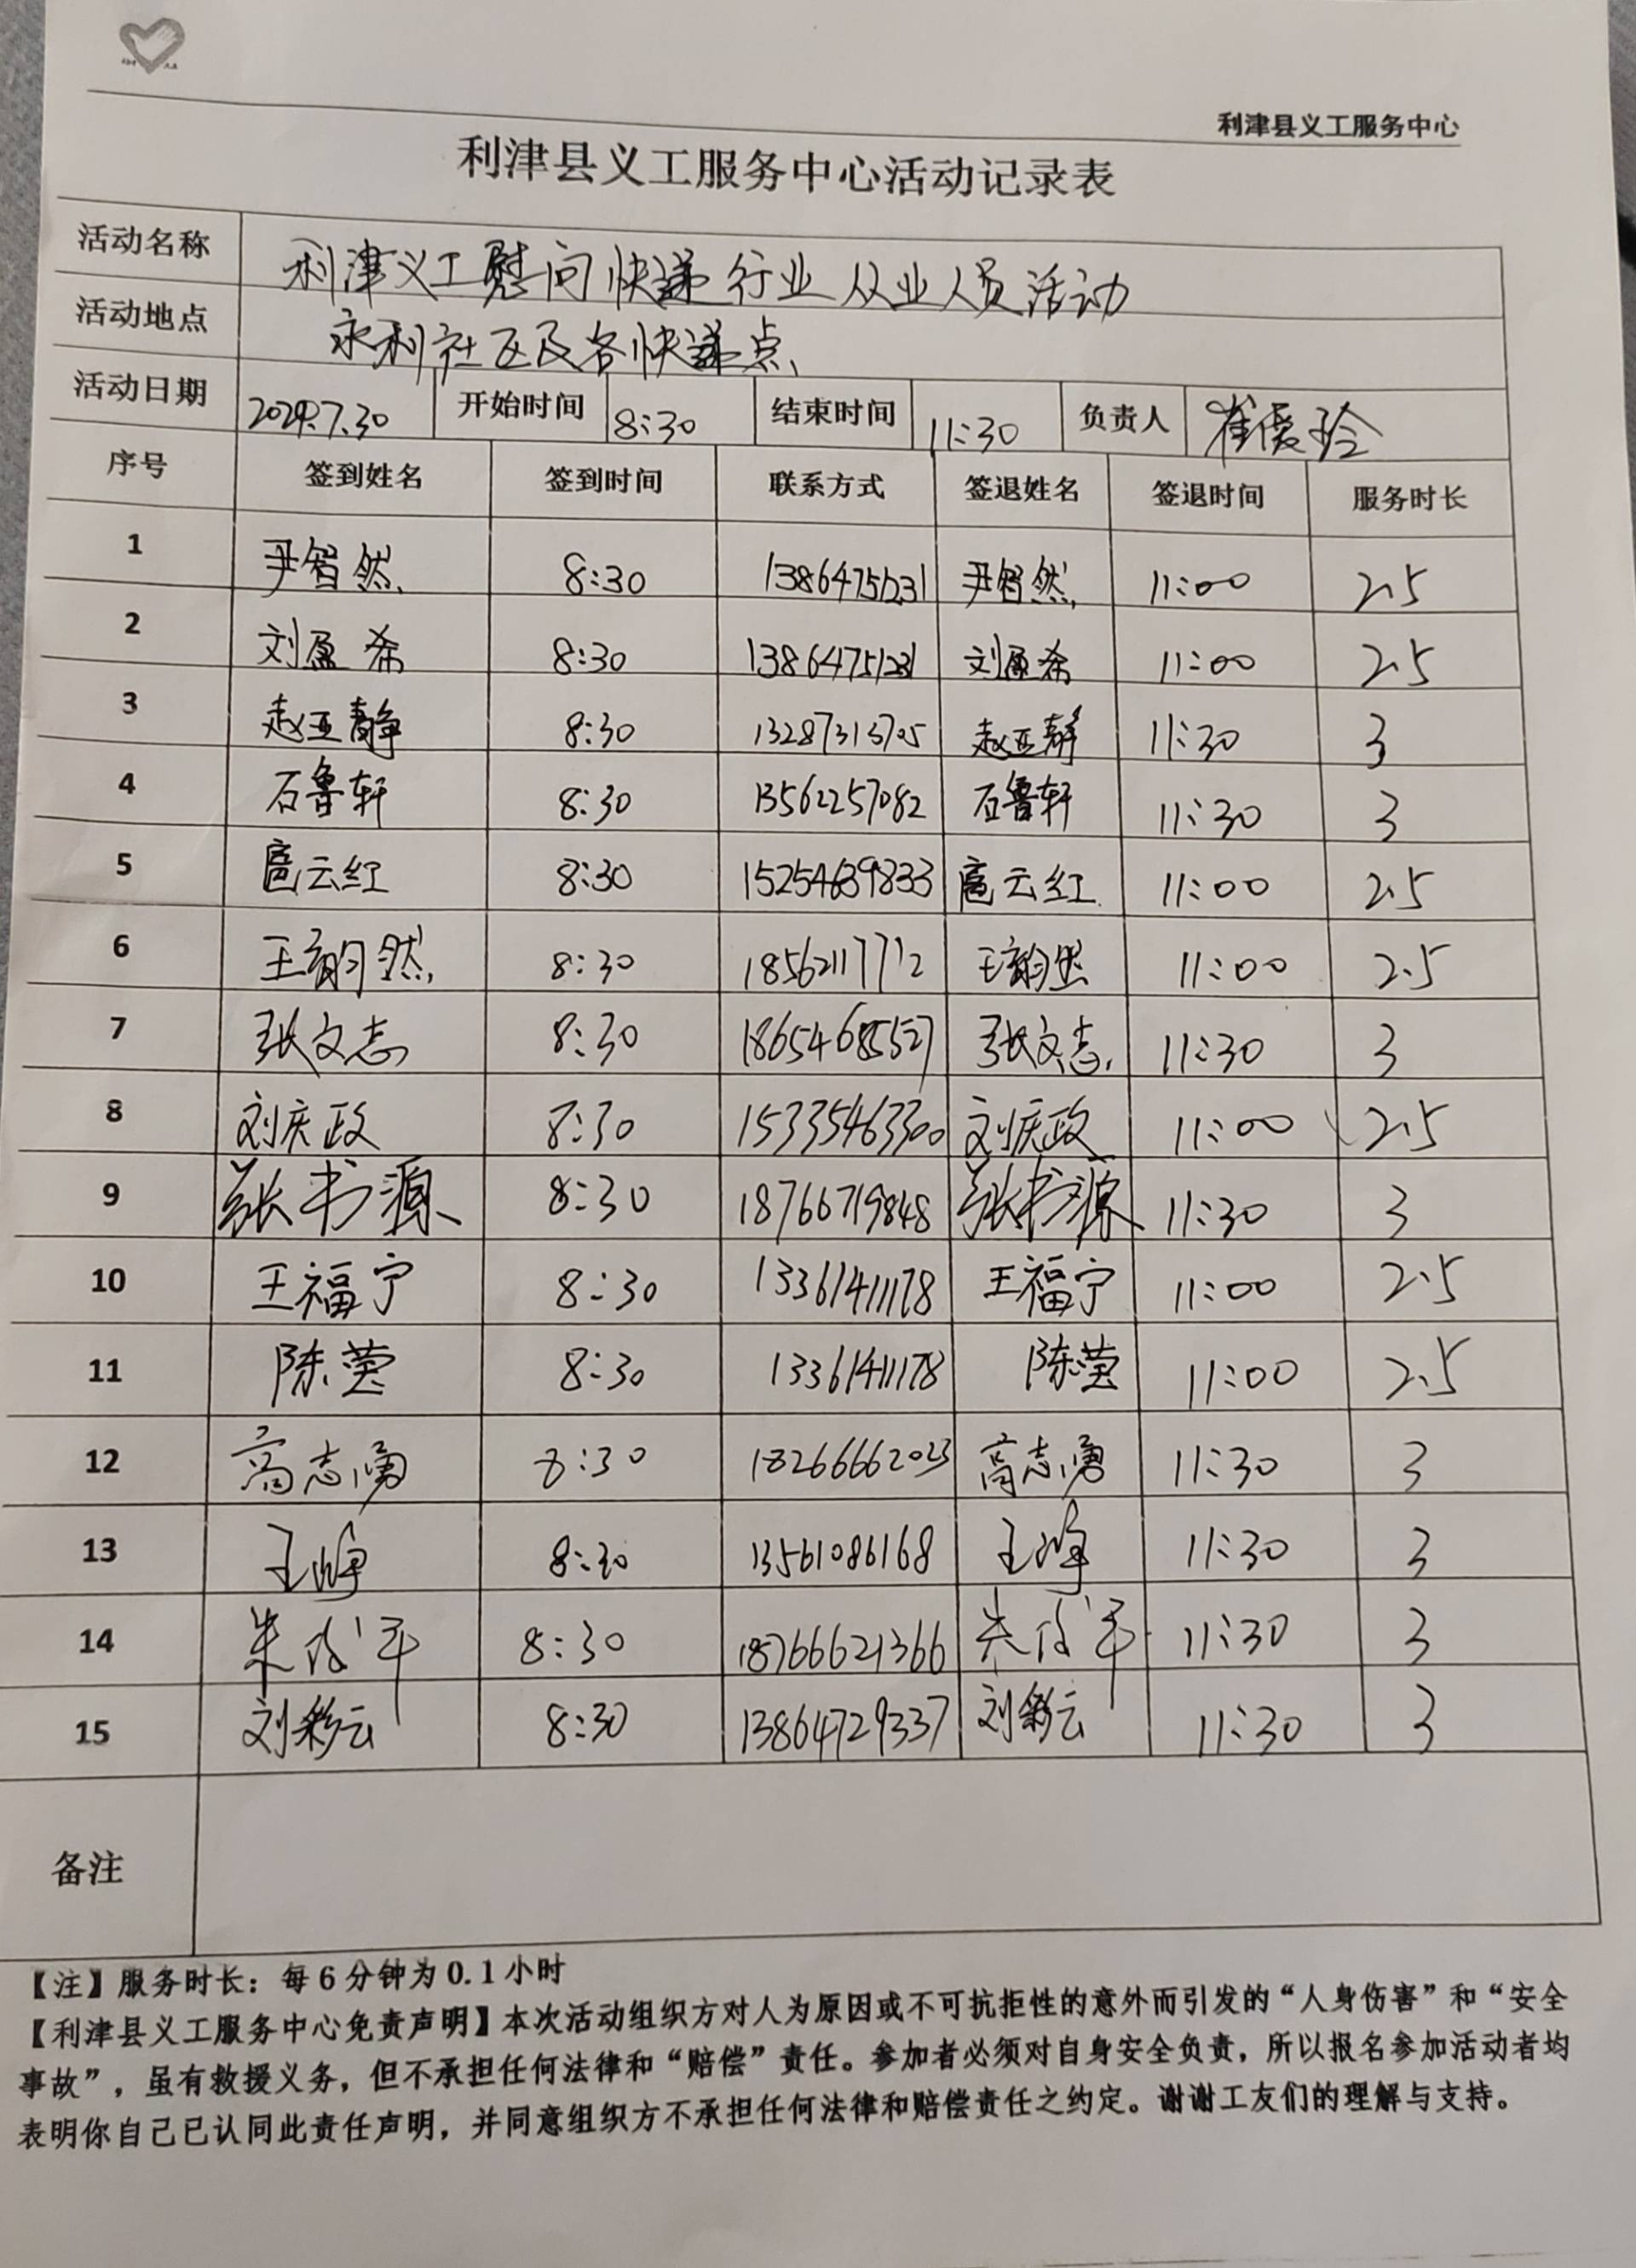 利津县义工服务中心
利津县义工服务中心活动记录表
活动名称 利津义工慰问快递行业从业人员活动
活动地点 永利社区及各快递点
活动日期 2024.7.30 开始时间 8:30 结束时间 11:30 负责人 崔爱玲
序号 签到姓名 签到时间 联系方式 签退姓名 签退时间 服务时长
1 尹智然 8:30 13864751231 尹智然 11:00 2.5
2 刘盈希 8:30 13864751231 刘盈希 11:00 2.5
3 赵亚静 8:30 13287313705 赵亚静 11:30 3
4 石鲁轩 8:30 13562257082 石鲁轩 11:30 3
5 扈云红 8:30 15254639833 扈云红 11:00 2.5
6 王韵然 8:30 18562117712 王韵然 11:00 2.5
7 张文志 8:30 18654685527 张文志 11:30 3
8 刘庆政 8:30 15335463300 刘庆政 11:00 2.5
9 张书源 8:30 18766719848 张书源 11:30 3
10 王福宁 8:30 13361411178 王福宁 11:00 2.5
11 陈莹 8:30 13361411178 陈莹 11:00 2.5
12 高志勇 8:30 18266662023 高志勇 11:30 3
13 王峥 8:30 13561086168 王峥 11:30 3
14 朱 军 8:30 18766621366 朱 军 11:30 3
15 刘彩云 8:30 13864729337 刘彩云 11:30 3
备注
【注】服务时长：每6分钟为0.1小时
【利津县义工服务中心免责声明】本次活动组织方对人为原因或不可抗拒性的意外而引发的“人身伤害”和“安全
事故”，虽有救援义务，但不承担任何法律和“赔偿”责任。参加者必须对自身安全负责，所以报名参加活动者均
表明你自己已认同此责任声明，并同意组织方不承担任何法律和赔偿责任之约定。谢谢工友们的理解与支持。